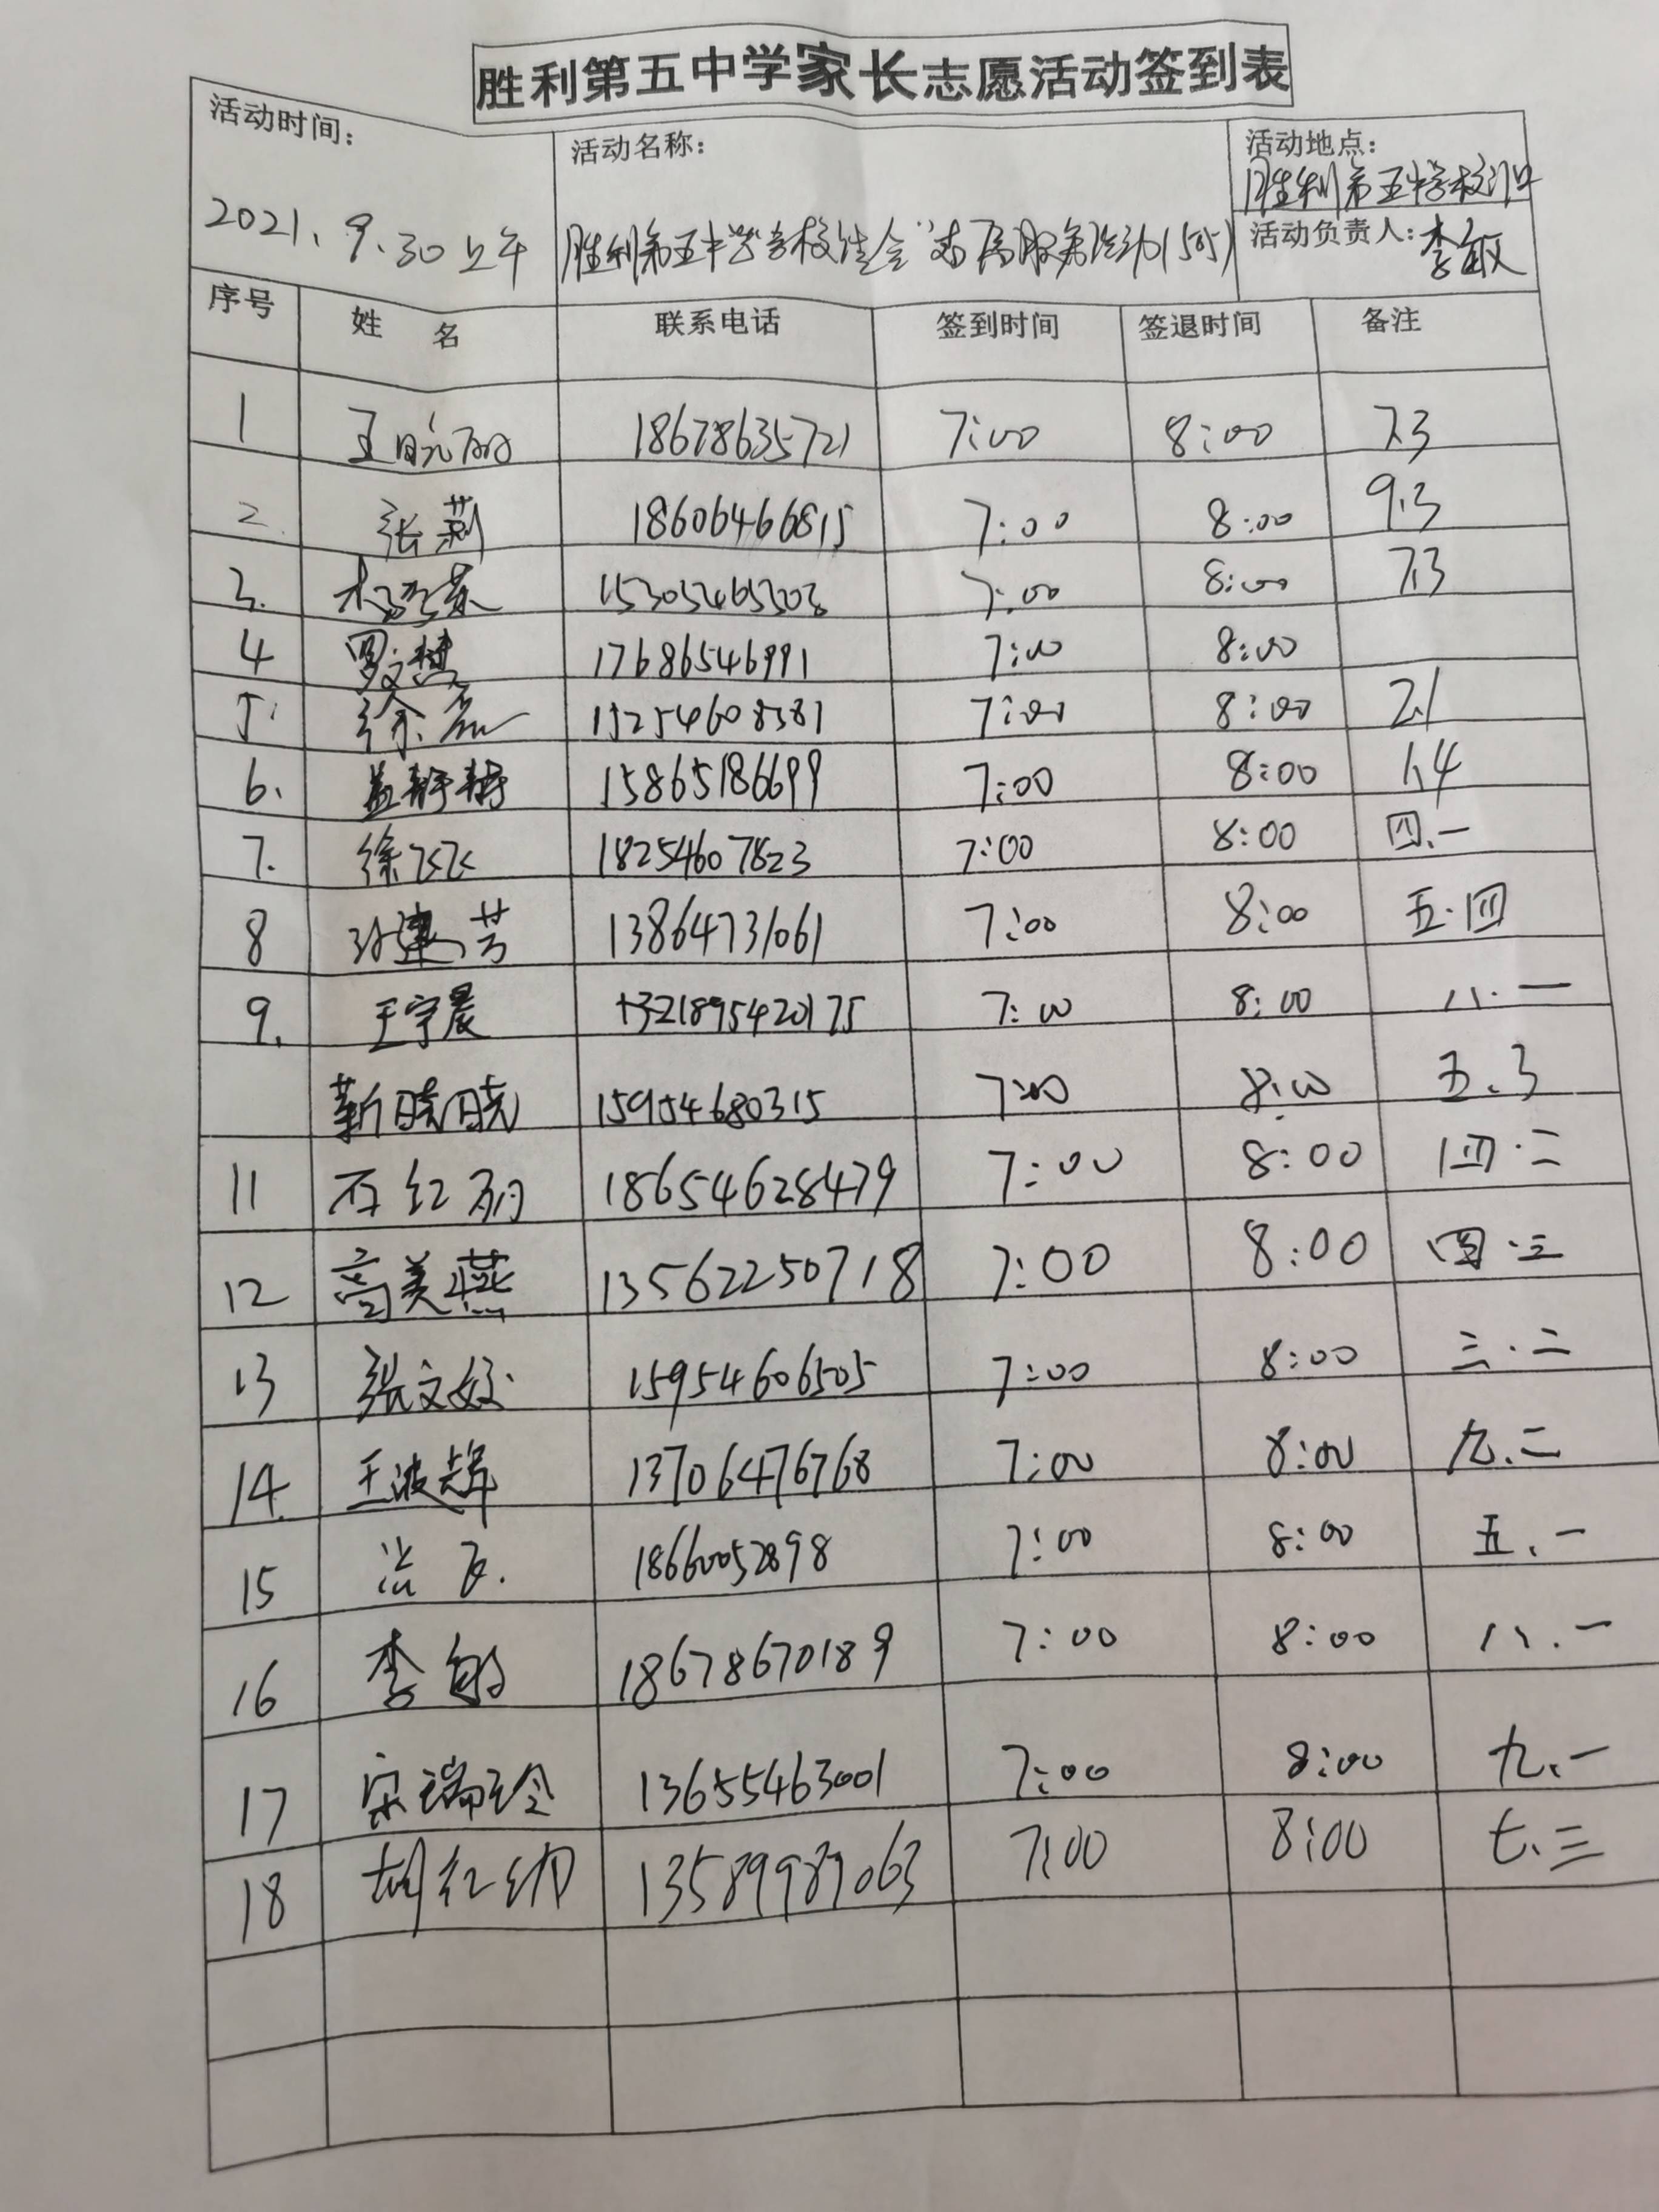 胜利第五中学家长志愿活动签到表
活动时间: 活动名称: 活动地点:
胜利第五中学校门口
2021.9.30上午 胜利第五中学 活动 活动负责人: 李敏
序号 姓 名 联系电话 签到时间 签退时间 备注
1 王晓丽 18678635721 7:00 8:00 7.3
2 张莉 18606466815 7:00 8:00 9.3
3. 15305465303 7:00 8:00 7.3
4 罗文慧 17686546991 7:00 8:00
5. 徐磊 15254608381 7:00 8:00 2.1
6. 盖静静 15865186699 7:00 8:00 1.4
7. 徐飞飞 18254607823 7:00 8:00 四.一
8 孙建芳 13864731061 7:00 8:00 五.四
9. 王宇晨 1895420175 7:00 8:00 八.一
靳晓晓 15954680315 7:00 8:00 五.3
11 石红丽 18654628479 7:00 8:00 四.二
12 高美燕 13562250718 7:00 8:00 四.三
13 张文姣 15954606505 7:00 8:00 三.二
14. 王波辉 13706476768 7:00 8:00 九.二
15 18660052898 7:00 8:00 五.一
16 李敏 18678670189 7:00 8:00 八.一
17 宋瑞玲 13655463001 7:00 8:00 九.一
18 胡红娟 13589987063 7:00 8:00 七.三